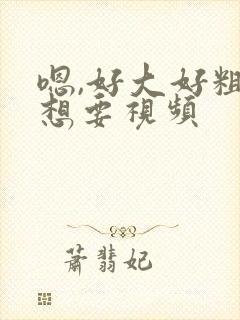 嗯,好大好粗
想要視頻
蕭翡妃